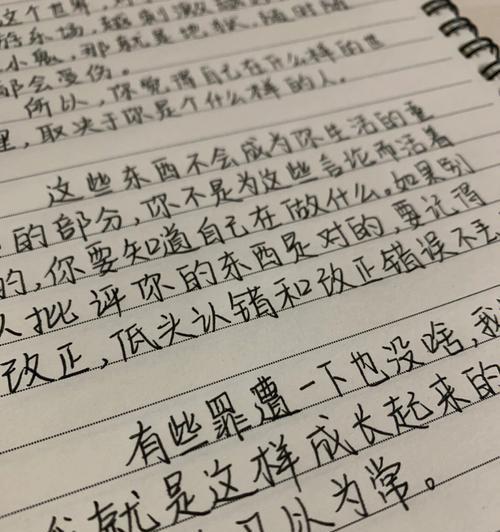 这个世界，对
游乐场，越刺激越
小鬼，那就是地狱，随时随
都会受伤。
所以，你觉得自己在什么样的世
里，取决于你是个什么样的人。
这些东西不会成为你生活的重
的部分，你不是为这些言论而活着
的，你要知道自己在做什么。如果别
人批评你的东西是对的，要记得
改正，低头认错和改正错误不丢
有些罪遭一下也没啥，我
我就是这样成长起来的
可以为常。